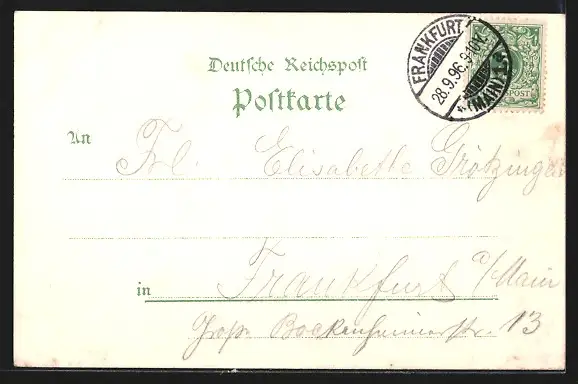 Deutsche Reichspost
Postkarte
FRANKFURT
28.9.96.9-10V.
(MAIN) 1
POST
An
Frl. Elisabethe Grötzinger
in Frankfurt a/Main
Große Bockenheimerstr. 13